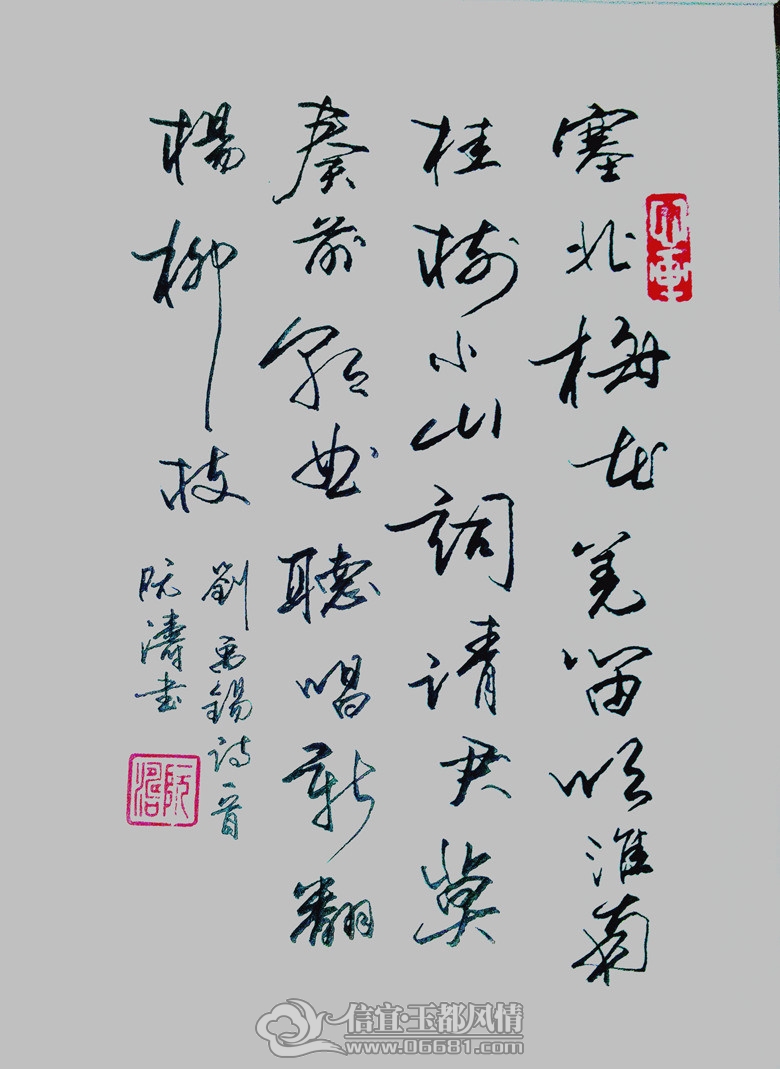 塞北梅花羌笛吹淮南
桂樹小山詞請君莫
奏前朝曲聽唱新翻
楊柳枝
劉禹錫詩一首
阮濤書
信宜·玉都风情
www.06681.com